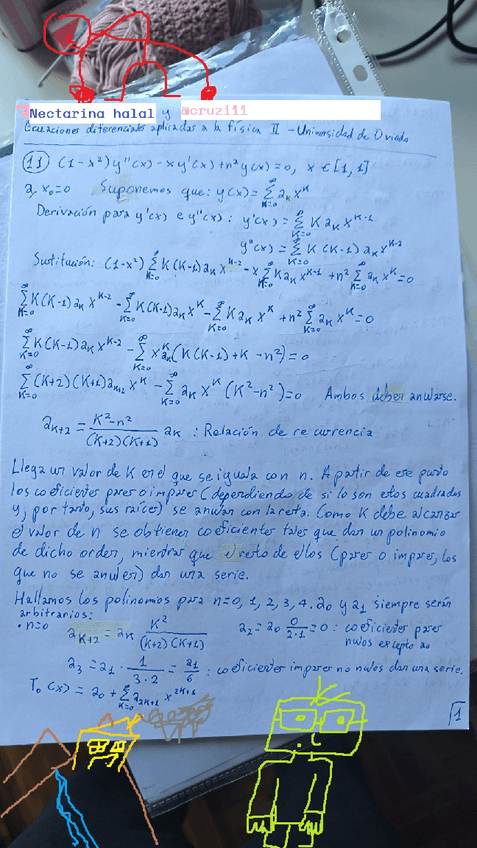 Nectarina halal y @cruzi11
Ecuaciones diferenciales aplicadas a la física II - Universidad de Oviedo
11 (1-x²)y''(x) - xy'(x) + n²y(x) = 0, x ∈ [1, 1]
a, x₀=0 Suponemos que: y(x) = ∑_{K=0}^∞ a_K x^K
Derivación para y'(x) e y''(x): y'(x) = ∑_{K=0}^∞ K a_K x^{K-1}
y''(x) = ∑_{K=0}^∞ K(K-1) a_K x^{K-2}
Sustitución: (1-x²) ∑_{K=0}^∞ K(K-1) a_K x^{K-2} - x ∑_{K=0}^∞ K a_K x^{K-1} + n² ∑_{K=0}^∞ a_K x^K = 0
∑_{K=0}^∞ K(K-1) a_K x^{K-2} - ∑_{K=0}^∞ K(K-1) a_K x^K - ∑_{K=0}^∞ K a_K x^K + n² ∑_{K=0}^∞ a_K x^K = 0
∑_{K=0}^∞ K(K-1) a_K x^{K-2} - ∑_{K=0}^∞ x^K a_K (K(K-1) + K - n²) = 0
∑_{K=0}^∞ (K+2)(K+1) a_{K+2} x^K - ∑_{K=0}^∞ a_K x^K (K²-n²) = 0 Ambos deben anularse.
a_{K+2} = (K²-n²)/((K+2)(K+1)) a_K : Relación de recurrencia
Llega un valor de K en el que se iguala con n. A partir de ese punto
los coeficientes pares o impares (dependiendo de si lo son estos cuadrados
y, por tanto, sus raíces) se anulan con la resta. Como K debe alcanzar
el valor de n se obtienen coeficientes tales que dan un polinomio
de dicho orden, mientras que el resto de ellos (pares o impares, los
que no se anulen) dan una serie.
Hallamos los polinomios para n=0, 1, 2, 3, 4. a₀ y a₁ siempre serán
arbitrarios:
• n=0 a_{K+2} = a_K K²/((K+2)(K+1)) a₂ = a₀ 0/(2·1) = 0 : coeficientes pares
nulos excepto a₀
a₃ = a₁ · 1/(3·2) = a₁/6 : coeficientes impares no nulos dan una serie.
T₀(x) = a₀ + ∑_{K=0}^∞ a_{2K+1} x^{2K+1}
1